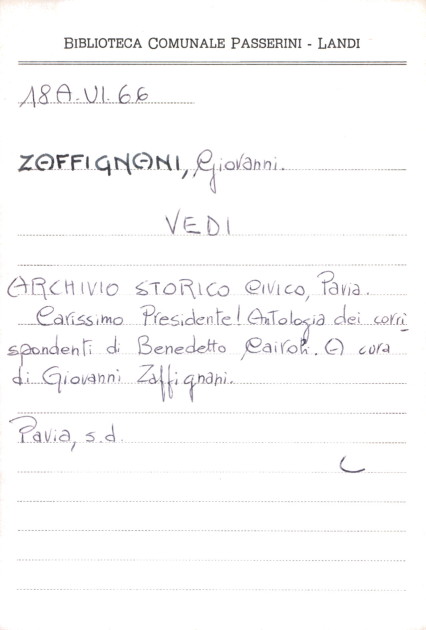 BIBLIOTECA COMUNALE PASSERINI - LANDI
18A.VI.66
ZAFFIGNANI, Giovanni.
VEDI
ARCHIVIO STORICO CIVICO, Pavia.
Carissimo Presidente! Antologia dei corri
spondenti di Benedetto Cairoli. A cura
di Giovanni Zaffignani.
Pavia, s.d.